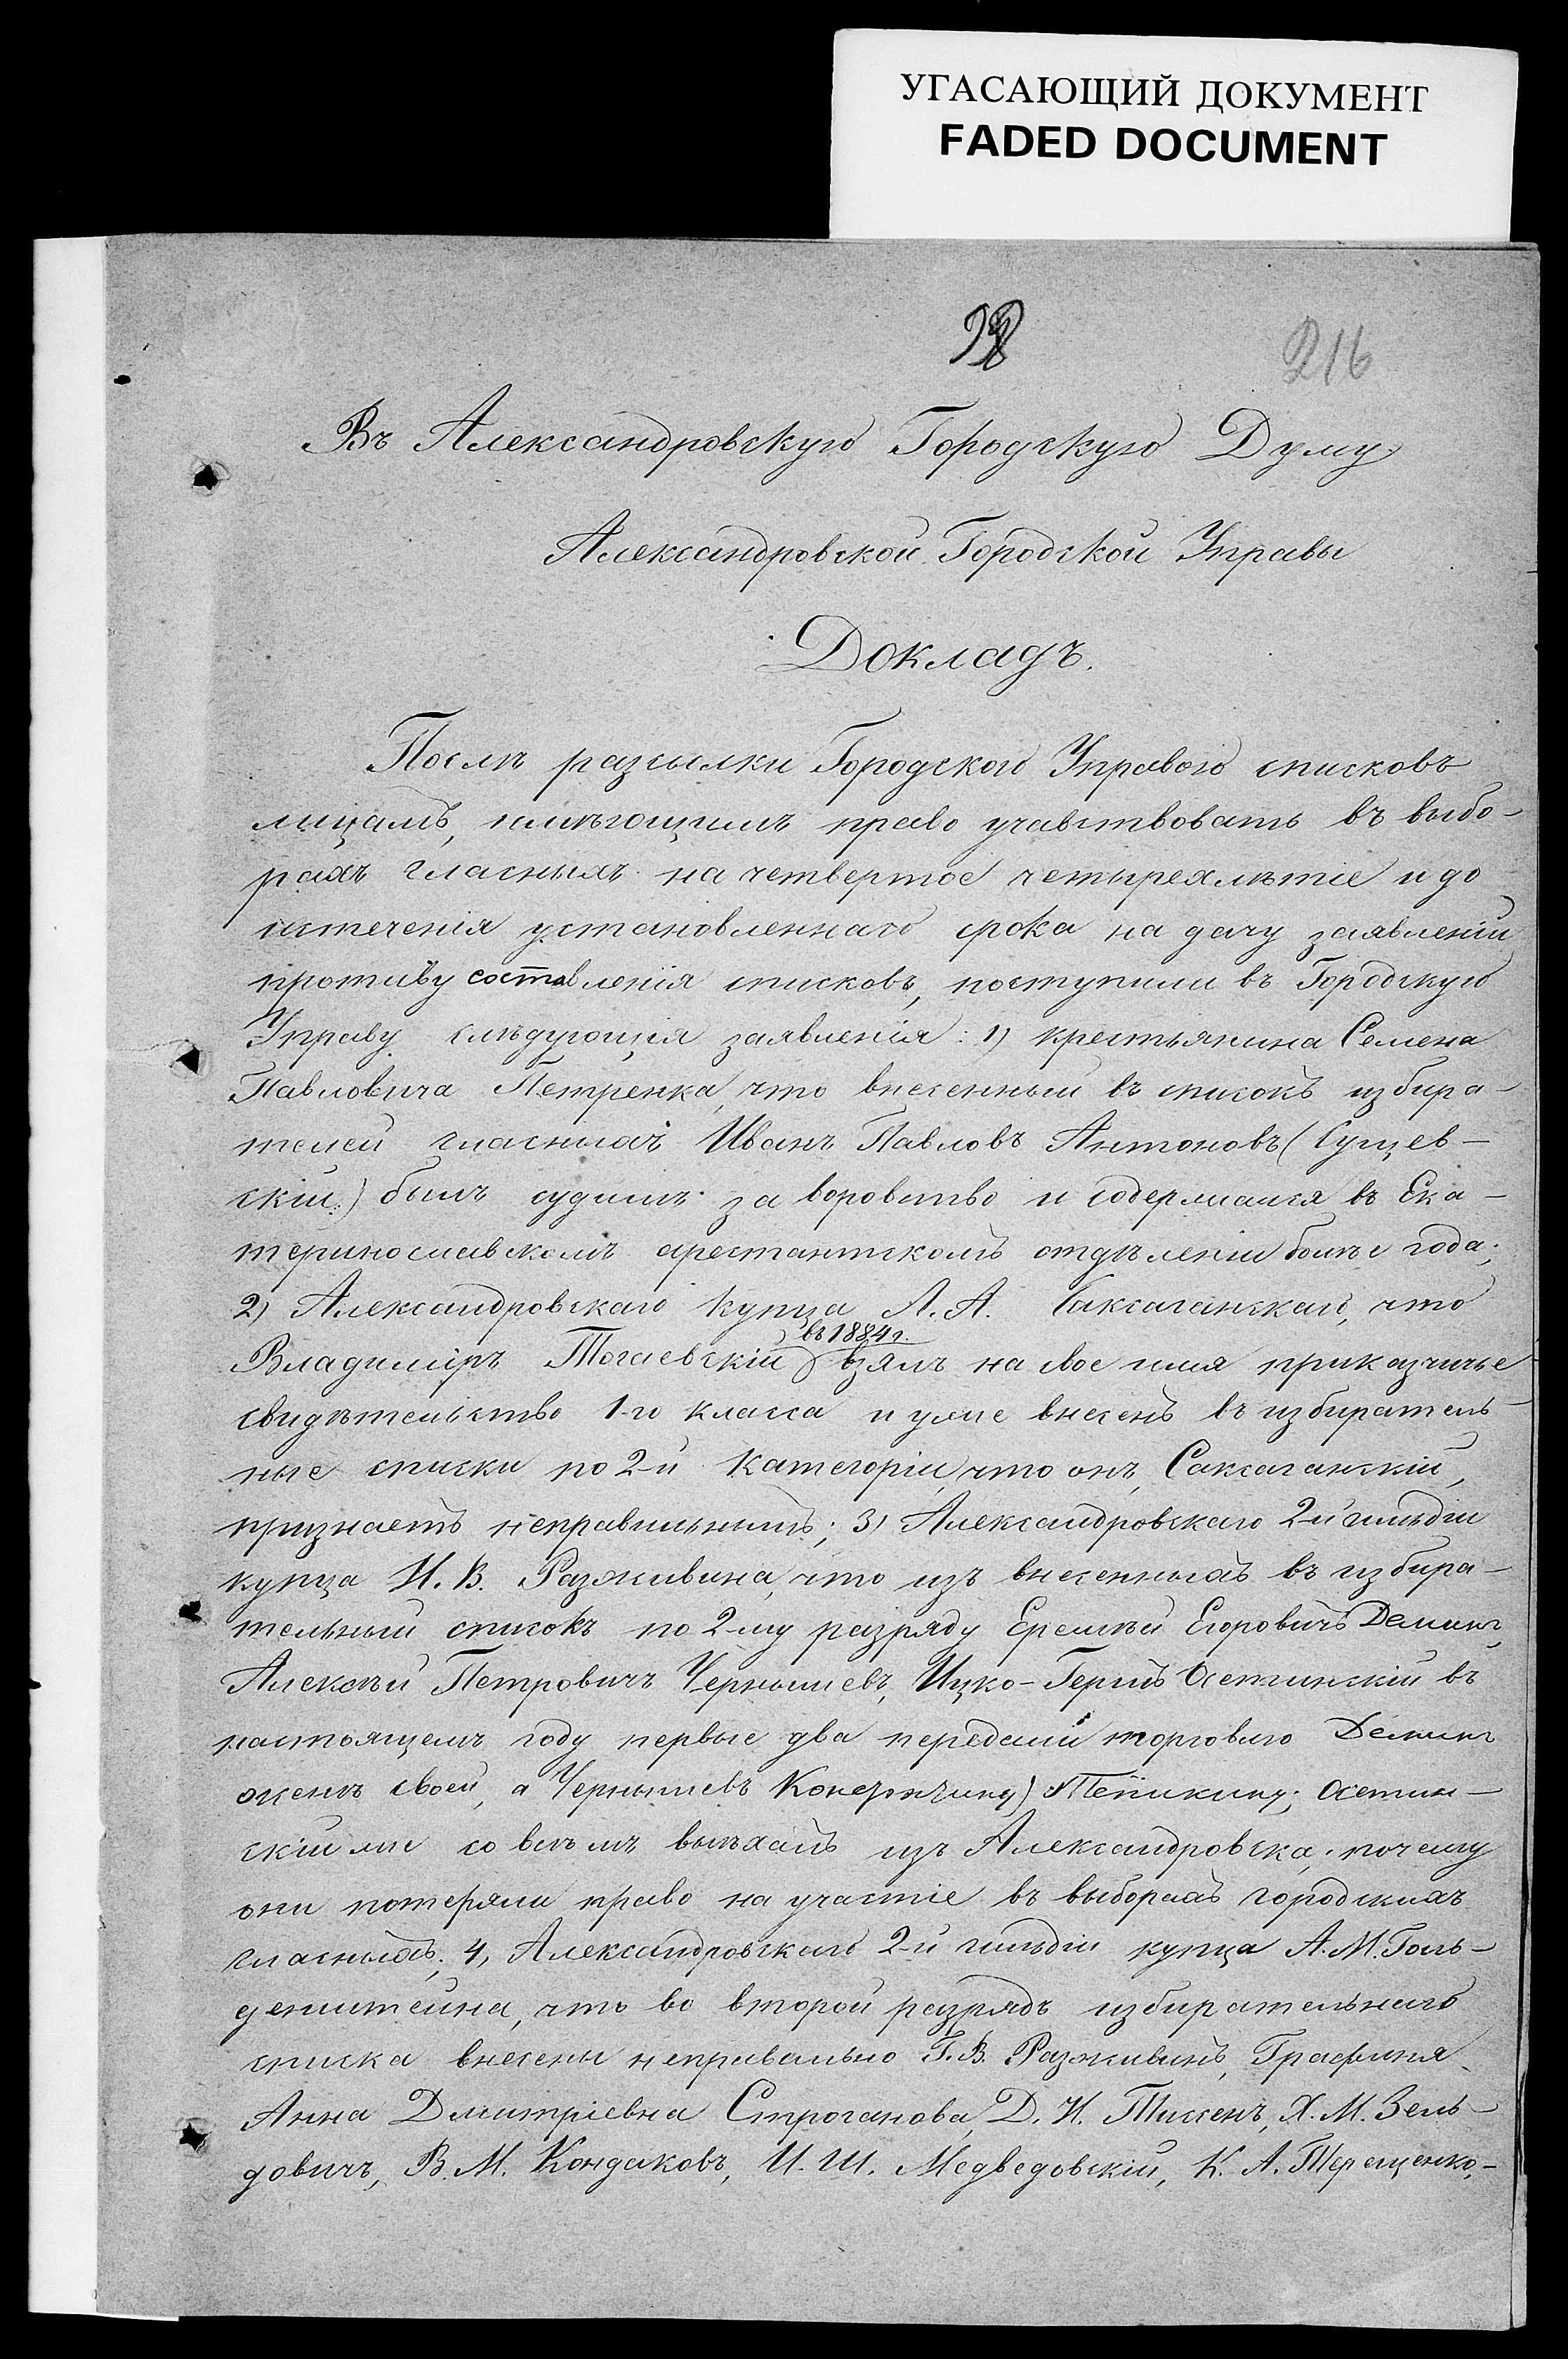 УГАСАЮЩИЙ ДОКУМЕНТ
FADED DOCUMENT
216
Въ Александровскую Городскую Думу
Александровской Городской Управы
Докладъ.
Послѣ разсылки Городскою Управою списковъ
лицамъ, имѣющимъ право учавствовать въ выбо-
рахъ гласныхъ на четвертое четырехлѣтіе и до
истеченія установленнаго срока на дачу заявленій
противу составленія списковъ, поступили въ Городскую
Управу слѣдующія заявленія: 1) крестьянина Семена
Павловича Петренка, что внесенный въ списокъ избира-
телей гласныхъ Иванъ Павловъ Антоновъ (Сущев-
скій) былъ судимъ за воровство и содержался въ Ека-
теринославскомъ арестантскомъ отдѣленіи болѣе года;
2) Александровскаго купца Л. А. Саксаганскаго, что
въ 1884 г.
Владиміръ Тогаевскій взялъ на свое имя приказчичье
свидѣтельство 1-го класса и уже внесенъ въ избиратель-
ные списки по 2-й категоріи, что онъ, Саксаганскій,
признаетъ неправильнымъ; 3) Александровскаго 2-й гильдіи
купца И. В. Разживина, что изъ внесенныхъ въ избира-
тельный списокъ по 2-му разряду Еремѣй Егоровичъ Деминъ,
Алексѣй Петровичъ Чернышевъ, Ицко-Гершъ Осетинскій въ
настоящемъ году первые два передали торговлю Деминъ
женѣ своей, а Чернышевъ Тепикину; Осетин-
скій же совсѣмъ выѣхалъ изъ Александровска, почему
они потеряли право на участіе въ выборахъ городскихъ
гласныхъ; 4, Александровскаго 2-й гильдіи купца А. М. Голь-
денштейна, что во второй разрядъ избирательнаго
списка внесены неправильно Г. В. Разживинъ, Графиня
Анна Дмитріевна Строганова, Д. И. Тиссенъ, Х. М. Зель-
довичъ, В. М. Кондаковъ, И. Ш. Медведовскій, К. А. Терещенко,-